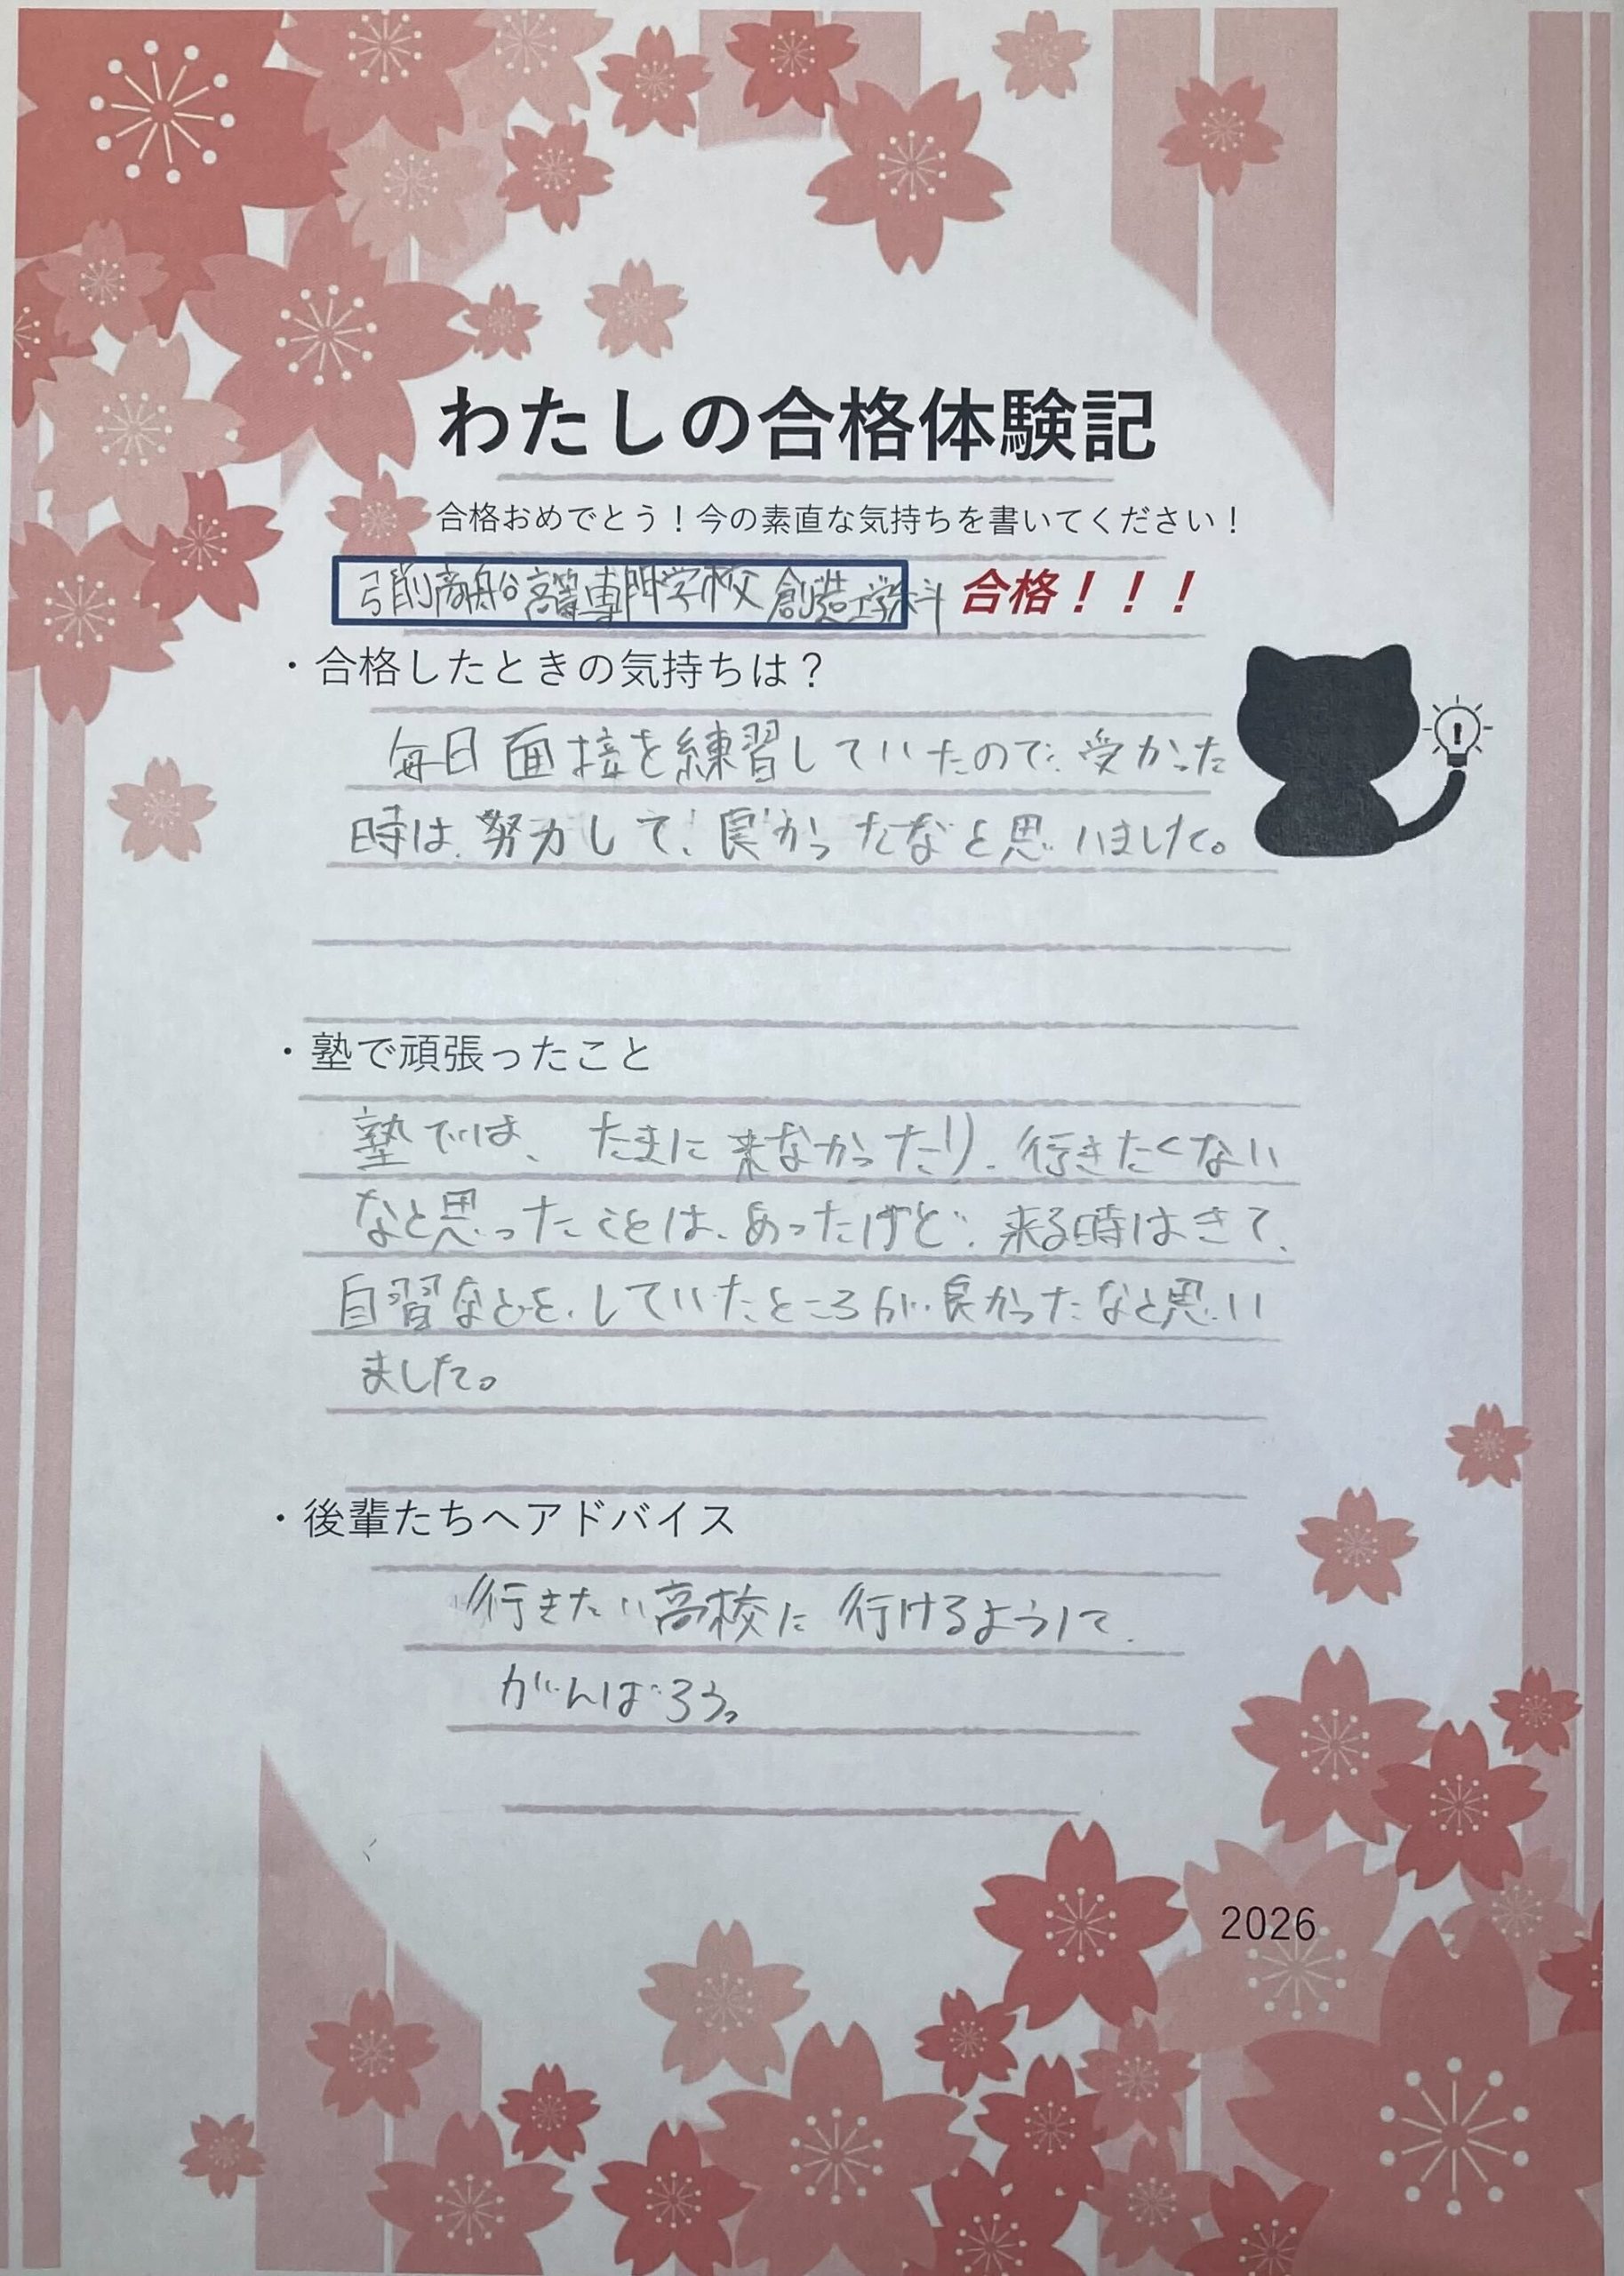 わたしの合格体験記
合格おめでとう！今の素直な気持ちを書いてください！
弓削商船高等専門学校 創造工学科 合格！！！
・合格したときの気持ちは？
毎日面接を練習していたので、受かった
時は、努力して、良かったなと思いました。
・塾で頑張ったこと
塾では、たまに来なかったり、行きたくない
なと思ったことは、あったけど、来る時はきて、
自習などを、していたところが、良かったなと思い
ました。
・後輩たちへアドバイス
行きたい高校に行けるようにて、
がんばろう。
2026